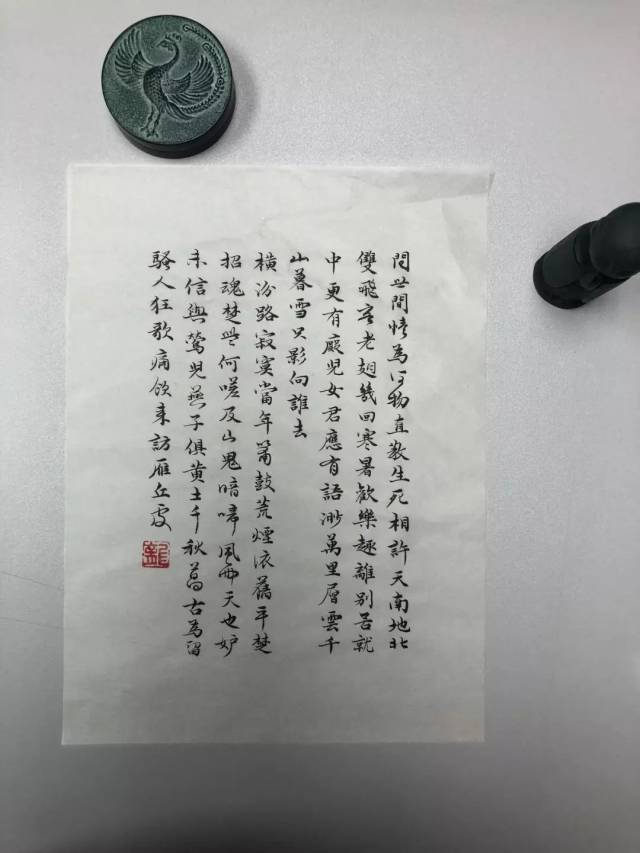 問世間情為何物直教生死相許天南地北
雙飛客老翅幾回寒暑歡樂趣離別苦就
中更有癡兒女君應有語渺萬里層雲千
山暮雪只影向誰去
橫汾路寂寞當年簫鼓荒煙依舊平楚
招魂楚些何嗟及山鬼暗啼風雨天也妒
未信與鶯兒燕子俱黃土千秋萬古為留
騷人狂歌痛飲來訪雁丘處